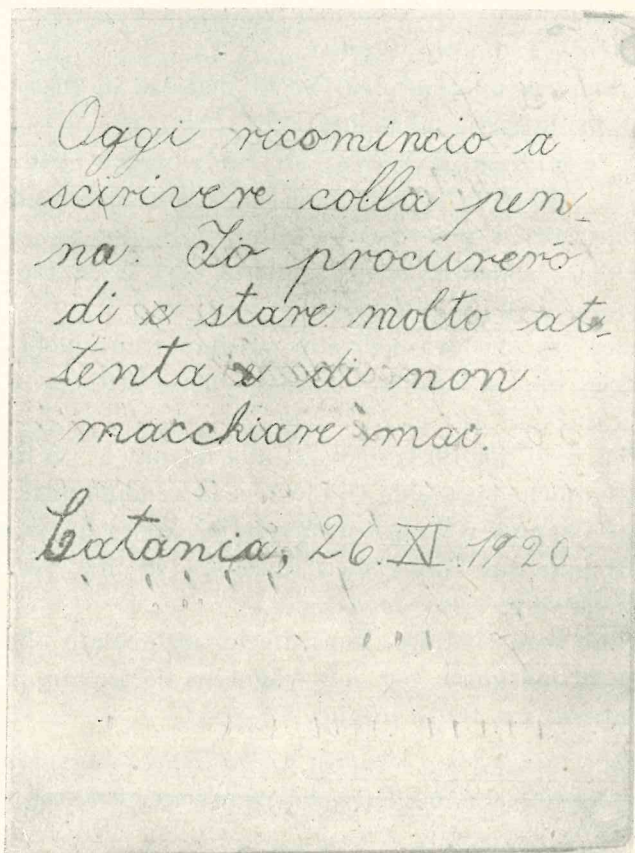 Oggi ricomincio a
scirivere colla pen-
na. Io procurerò
di e stare molto at-
tenta e di non
macchiare mai.
Catania, 26.XI.1920